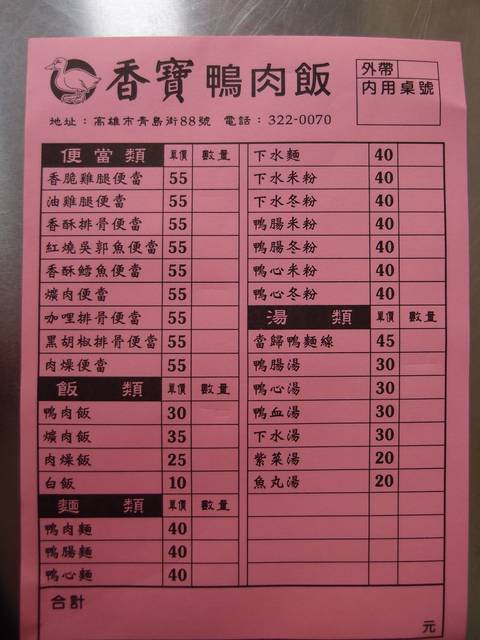 香寶鴨肉飯
外帶
內用桌號
地址：高雄市青島街88號 電話：322-0070
便當類 單價 數量
香脆雞腿便當 55
油雞腿便當 55
香酥排骨便當 55
紅燒吳郭魚便當 55
香酥鱈魚便當 55
爌肉便當 55
咖哩排骨便當 55
黑胡椒排骨便當 55
肉燥便當 55
飯類 單價 數量
鴨肉飯 30
爌肉飯 35
肉燥飯 25
白飯 10
麵類 單價 數量
鴨肉麵 40
鴨腸麵 40
鴨心麵 40
下水麵 40
下水米粉 40
下水冬粉 40
鴨腸米粉 40
鴨腸冬粉 40
鴨心米粉 40
鴨心冬粉 40
湯類 單價 數量
當歸鴨麵線 45
鴨腸湯 30
鴨心湯 30
鴨血湯 30
下水湯 30
紫菜湯 20
魚丸湯 20
合計
元